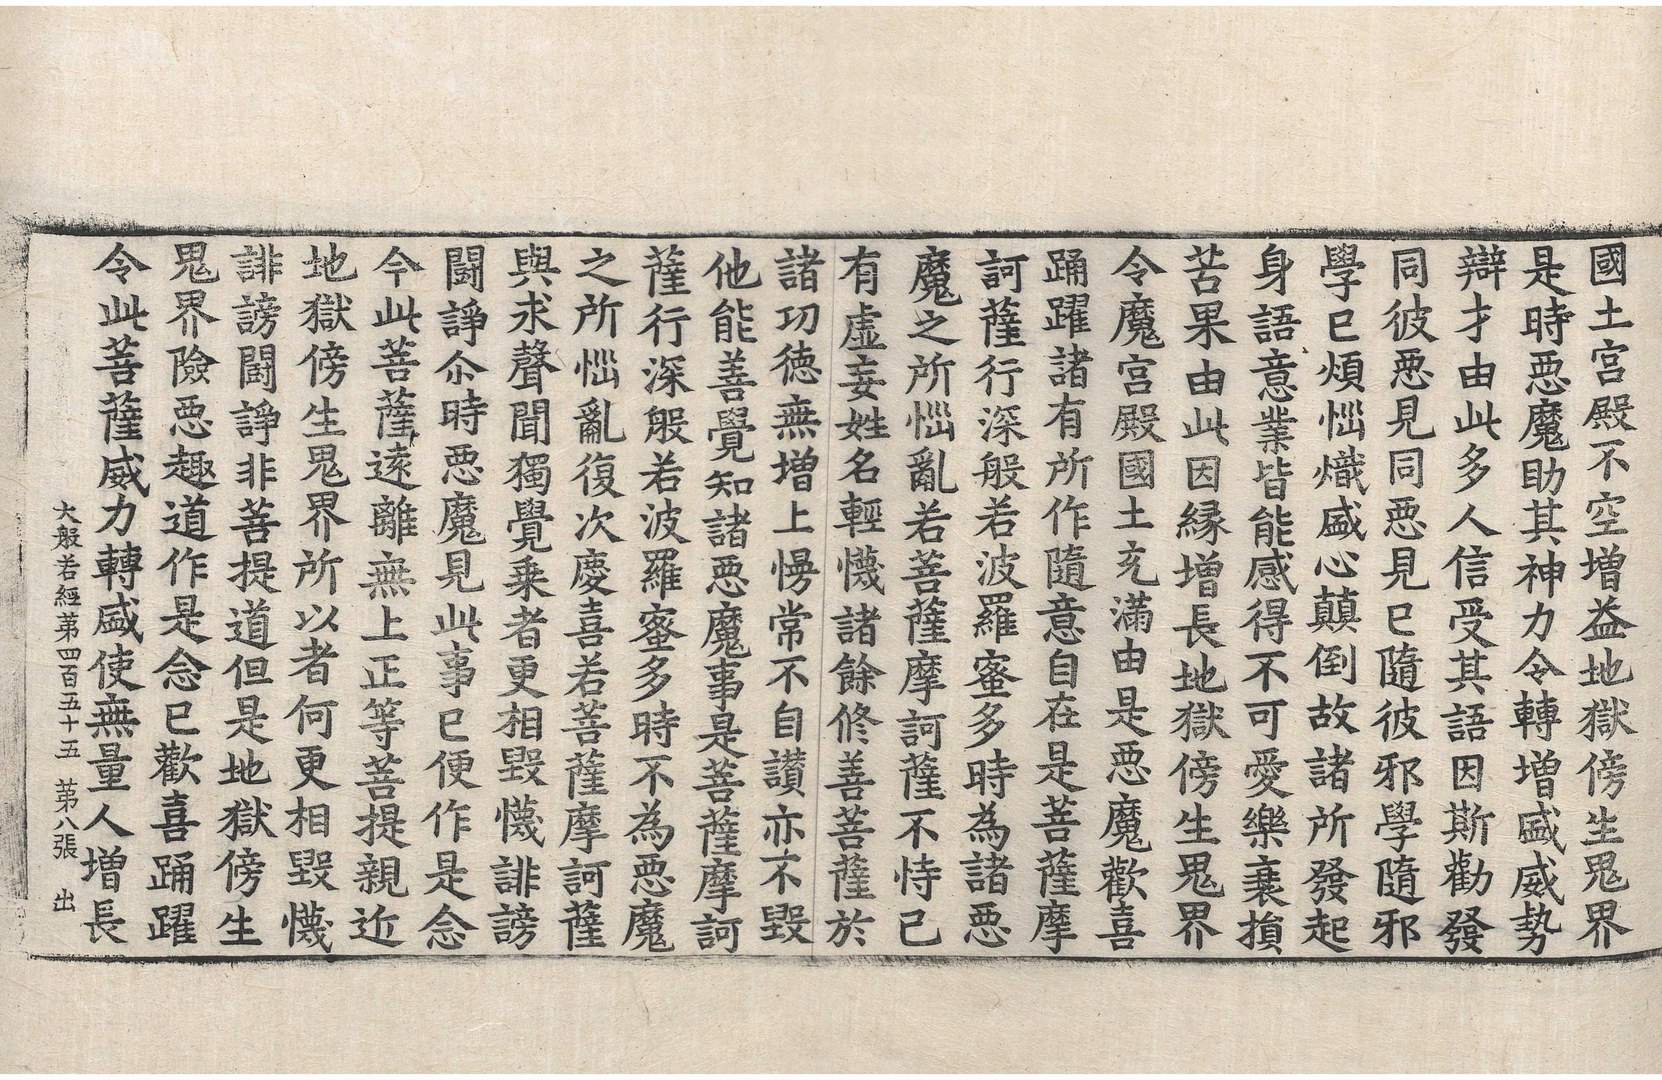 國土宮殿不空增益地獄傍生鬼界
是時惡魔助其神力令轉增盛威勢
辯才由此多人信受其語因斯勸發
同彼惡見同惡見已隨彼邪學隨邪
學已煩惱熾盛心顛倒故諸所發起
身語意業皆能感得不可愛樂衰損
苦果由此因緣增長地獄傍生鬼界
令魔宮殿國土充滿由是惡魔歡喜
踊躍諸有所作隨意自在是菩薩摩
訶薩行深般若波羅蜜多時為諸惡
魔之所惱亂若菩薩摩訶薩不恃己
有虛妄姓名輕懱諸餘修善菩薩於
諸功德無增上慢常不自讃亦不毀
他能善覺知諸惡魔事是菩薩摩訶
薩行深般若波羅蜜多時不為惡魔
之所惱亂復次慶喜若菩薩摩訶薩
與求聲聞獨覺乗者更相毀懱誹謗
鬪諍尒時惡魔見此事已便作是念
今此菩薩遠離無上正等菩提親近
地獄傍生鬼界所以者何更相毀懱
誹謗鬪諍非菩提道但是地獄傍生
鬼界險惡趣道作是念已歡喜踊躍
令此菩薩威力轉盛使無量人增長
大般若經第四百五十五 第八張 出